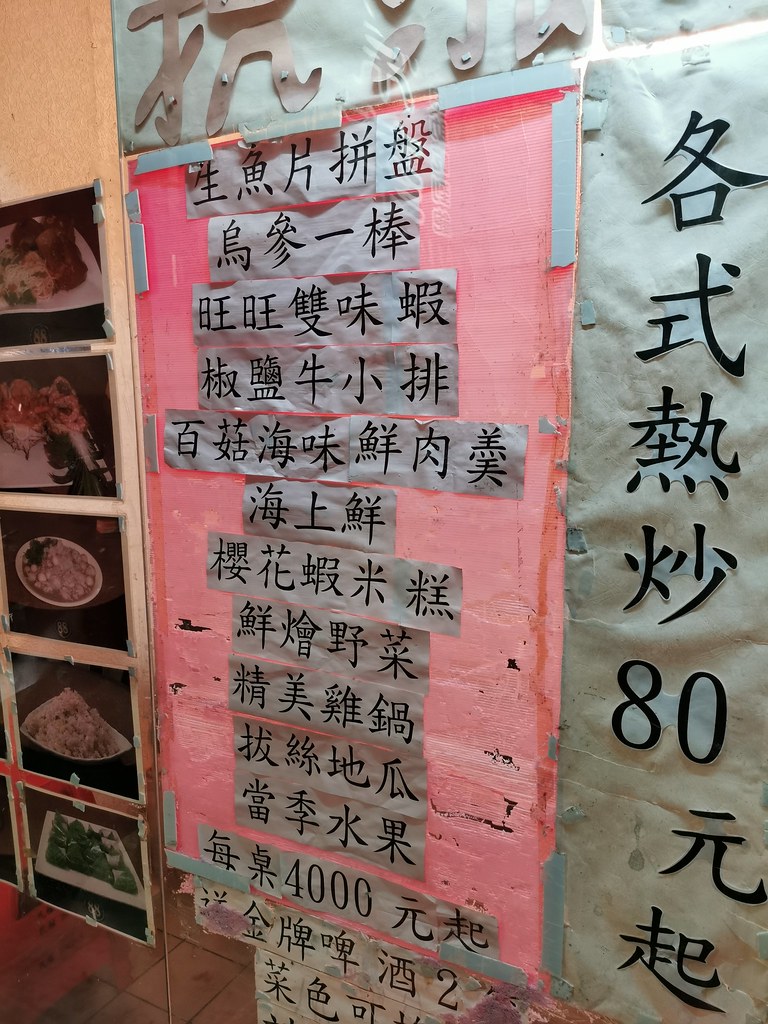 生魚片拼盤
烏參一棒
旺旺雙味蝦
椒鹽牛小排
百菇海味鮮肉羹
海上鮮
櫻花蝦米糕
鮮燴野菜
精美雞鍋
拔絲地瓜
當季水果
每桌4000元起
送金牌啤酒2
菜色可
各式熱炒80元起